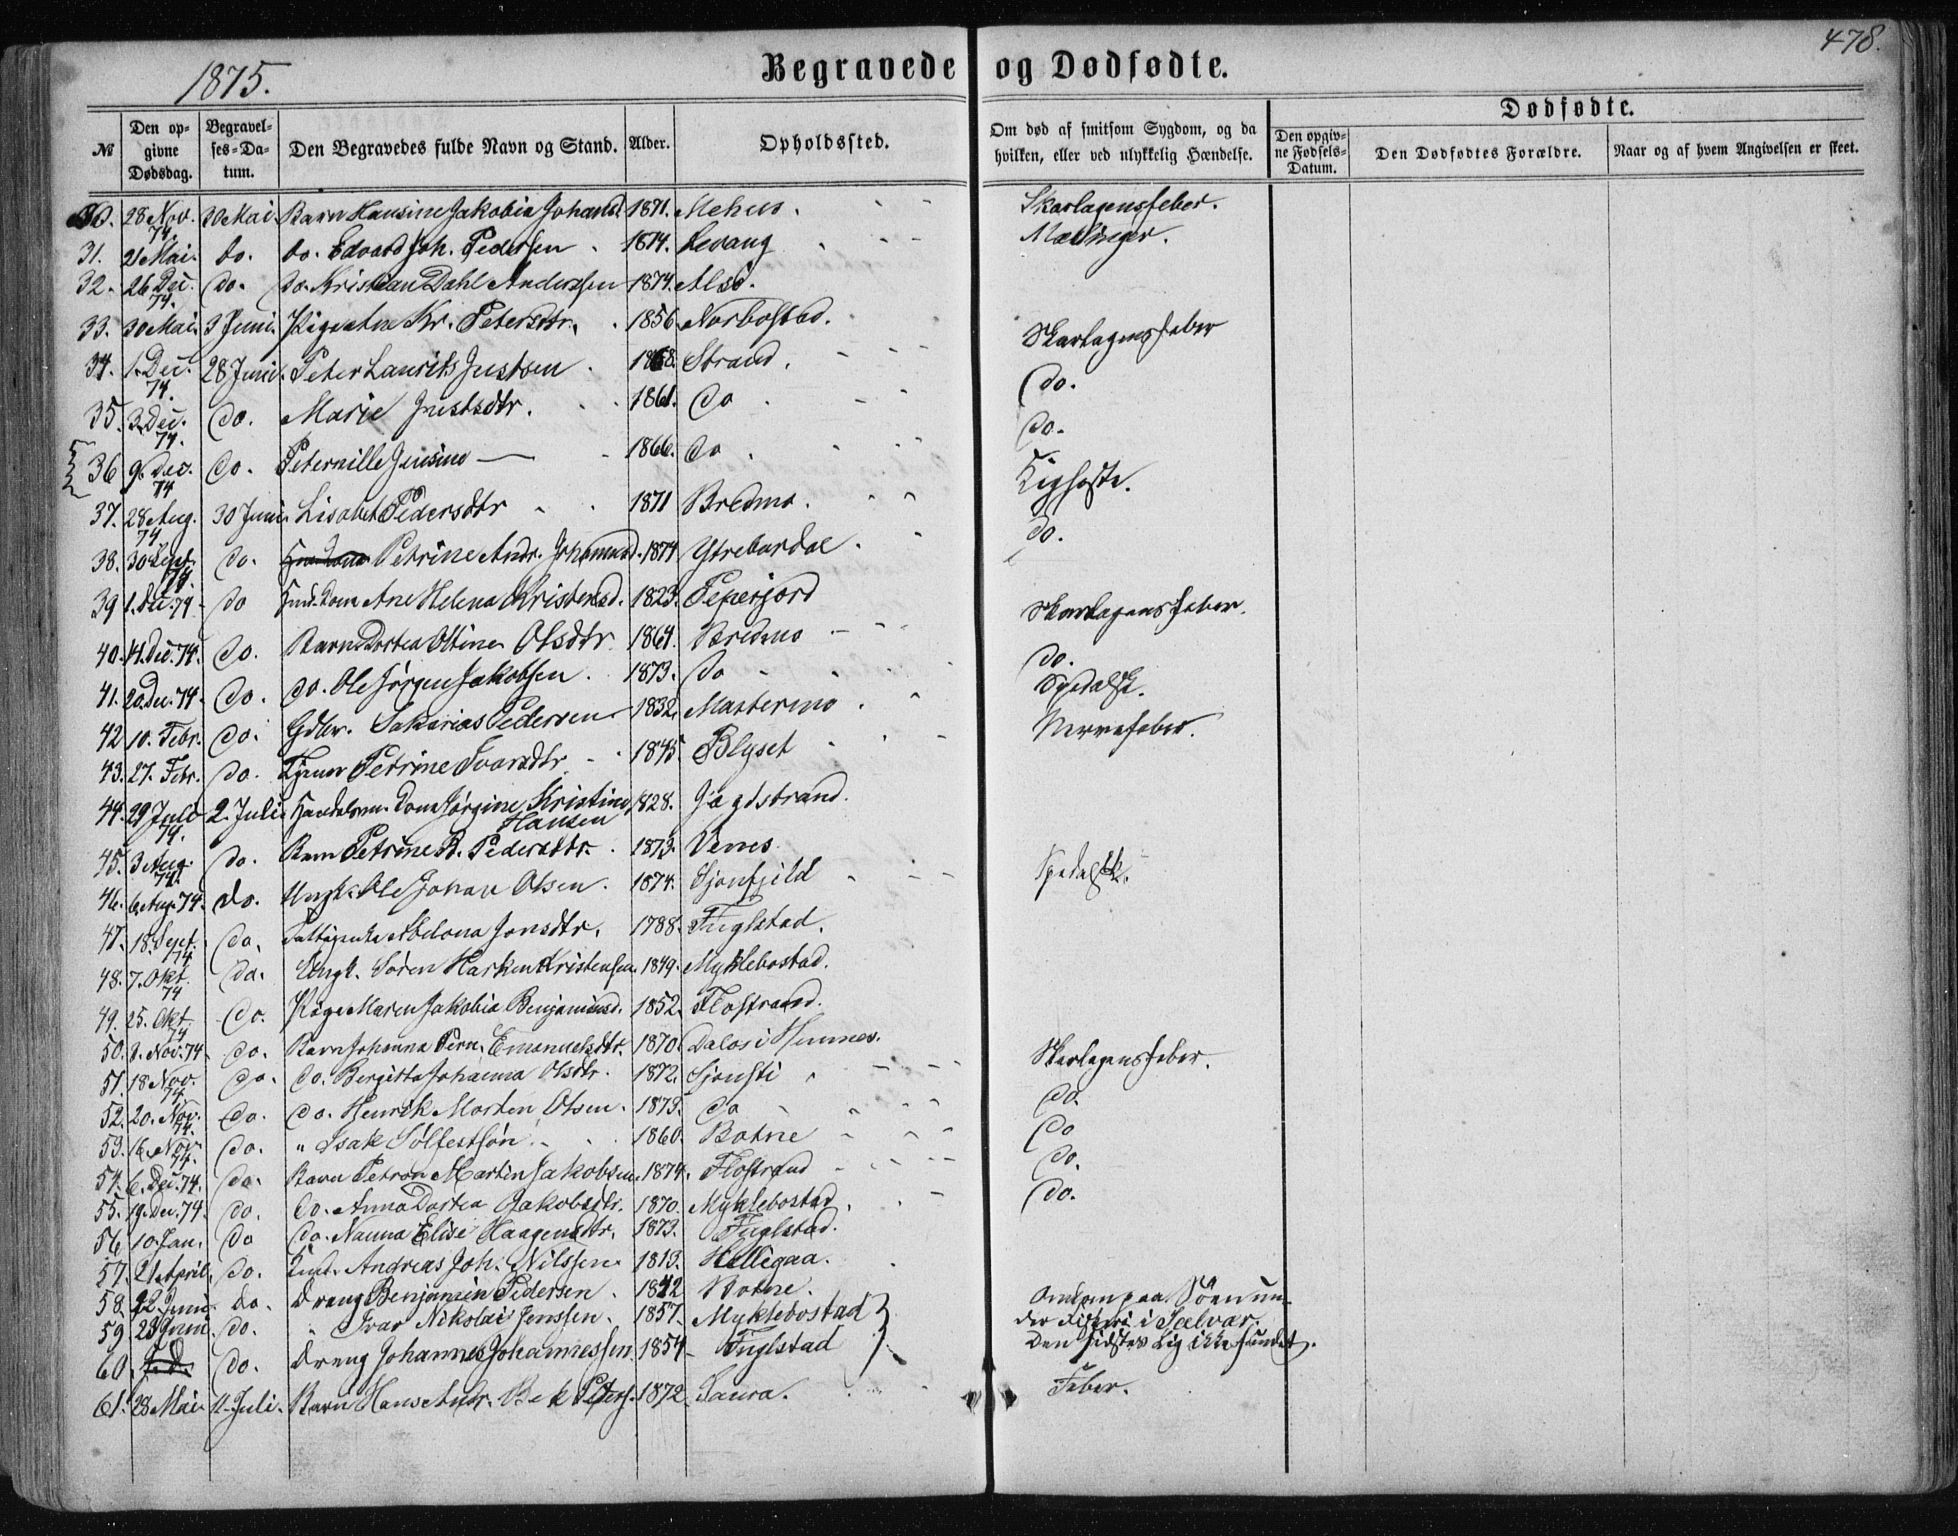 1875.
Begravede og Dødfødte.
478.
№
Den opgivne Dødsdag.
Begravelses-Datum.
Den Begravedes fulde Navn og Stand.
Alder.
Opholdssted.
Om død af smitsom Sygdom, og da hvilken, eller ved ulykkelig Hændelse.
Dødfødte.
Den opgivne Fødsels-Datum.
Den Dødfødtes Forældre.
Naar og af hvem Angivelsen er skeet.
30. 28 Nov. 74. 30 Mai. Barn Hansine Jakobia Johansd. 1871. Mehus. Skarlagensfeber.
31. 21 Mai. do. do. Edvard Joh. Pedersen 1874. Levang Mæslinger.
32. 26 Dec. 74. do. do. Kristian Dahl Anderssen 1874. Alsö.
33. 30 Mai. 3 Juni. Pige Ane Kr. Petersdtr. 1856. Norbostad.
34. 1. Dec. 74. 28 Juni. Peter Laurits Justsen 1868. Strand. Skarlagensfeber
35. 3. Dec. 74. do. Marie Justsdtr. 1861. do do.
36 9. Dec. 74 do. Peternille Jensine — 1866. do do.
37. 28 Aug. 74. 30 Juni. Lisabet Pedersdtr 1871 Bredmo. Kighoste.
38. 30 Sept. 74. do. Petrine Andr. Johannsd. 1874 Ytrebardal do.
39 1. Dec. 74 do Ane Helena Kristensd. 1823. Peperjord
40. 14. Dec. 74. do. Barn Dortea Oltine Olsdtr 1864. Bredmo Skarlagensfeber.
41. 20. Dec. 74. do. do. Ole Jörgen Jakobsen. 1873. do do.
42 10. Febr. do. Gdbr. Sakarias Pedersen 1832. Mastermo Spedalsk.
43. 27. Febr. do. Petrine Ivarsdtr. 1845 Blyset Nervefeber.
44. 29 Juli 74. 2. Juli. Handelsm. Dom Jørgine Kristine Hansen 1828. Jægdstrand.
45. 3 Aug. 74. do. Barn Petrine B. Pedersdtr. 1873. Venes
46. 6. Aug. 74. do. Ungk. Ole Johan Olsen. 1874. Sjonfjeld Spedalsk.
47. 18. Sept. 74 do. Abelona Jonsdtr. 1788. Fuglstad.
48. 7. Okt. 74 do. Ungk. Sören Harken Kristensen. 1849. Myklebostad.
49. 25. Okt. 74 do. Pige Maren Jakobia Benjaminsd. 1852. Flostrand.
50. Nov. 74. do. Barn Johanna Pern. Emanuelsdtr. 1870. Dalos i Hemnes.
51. 18 Nov. 74. do. do. Bergitta Johanna Olsdtr. 1872. Sjonsti Skarlagensfeber.
52. 20. Nov. 74. do. do. Henrik Morten Olsen. 1873. do do.
53. 16. Nov. 74. do. „ Isak Sölfestsön. 1860. Botne do
54. 6. Dec. 74. do. Barn Petron Martin Jakobsen. 1874. Flostrand do.
55. 19. Dec. 74. do. do. Anna Dortea Jakobsdtr. 1870. Myklebostad do.
56 10. Jan. do do. Nanna Elise Haagensdtr. 1873. Fuglstad.
57. 21 April. do. Andreas Joh. Nilssen. 1813. Helligaa.
58. 22. Juni. do. Dreng Benjamin Pedersen. 1842 Botne. Omkom paa Söen un-
59. 23 Juni do. „ Ivar Nikolai Jenssen. 1857. Myklebostad der Fiskeri i Selvær.
60. do. Dreng Johannes Johannessen 1854 Fuglstad Den sidstes Lig ikke fundet.
61. 28 Mai. 11. Juli. Barn Hans Andr. Bek Peters. 1872. Saura. Feber.